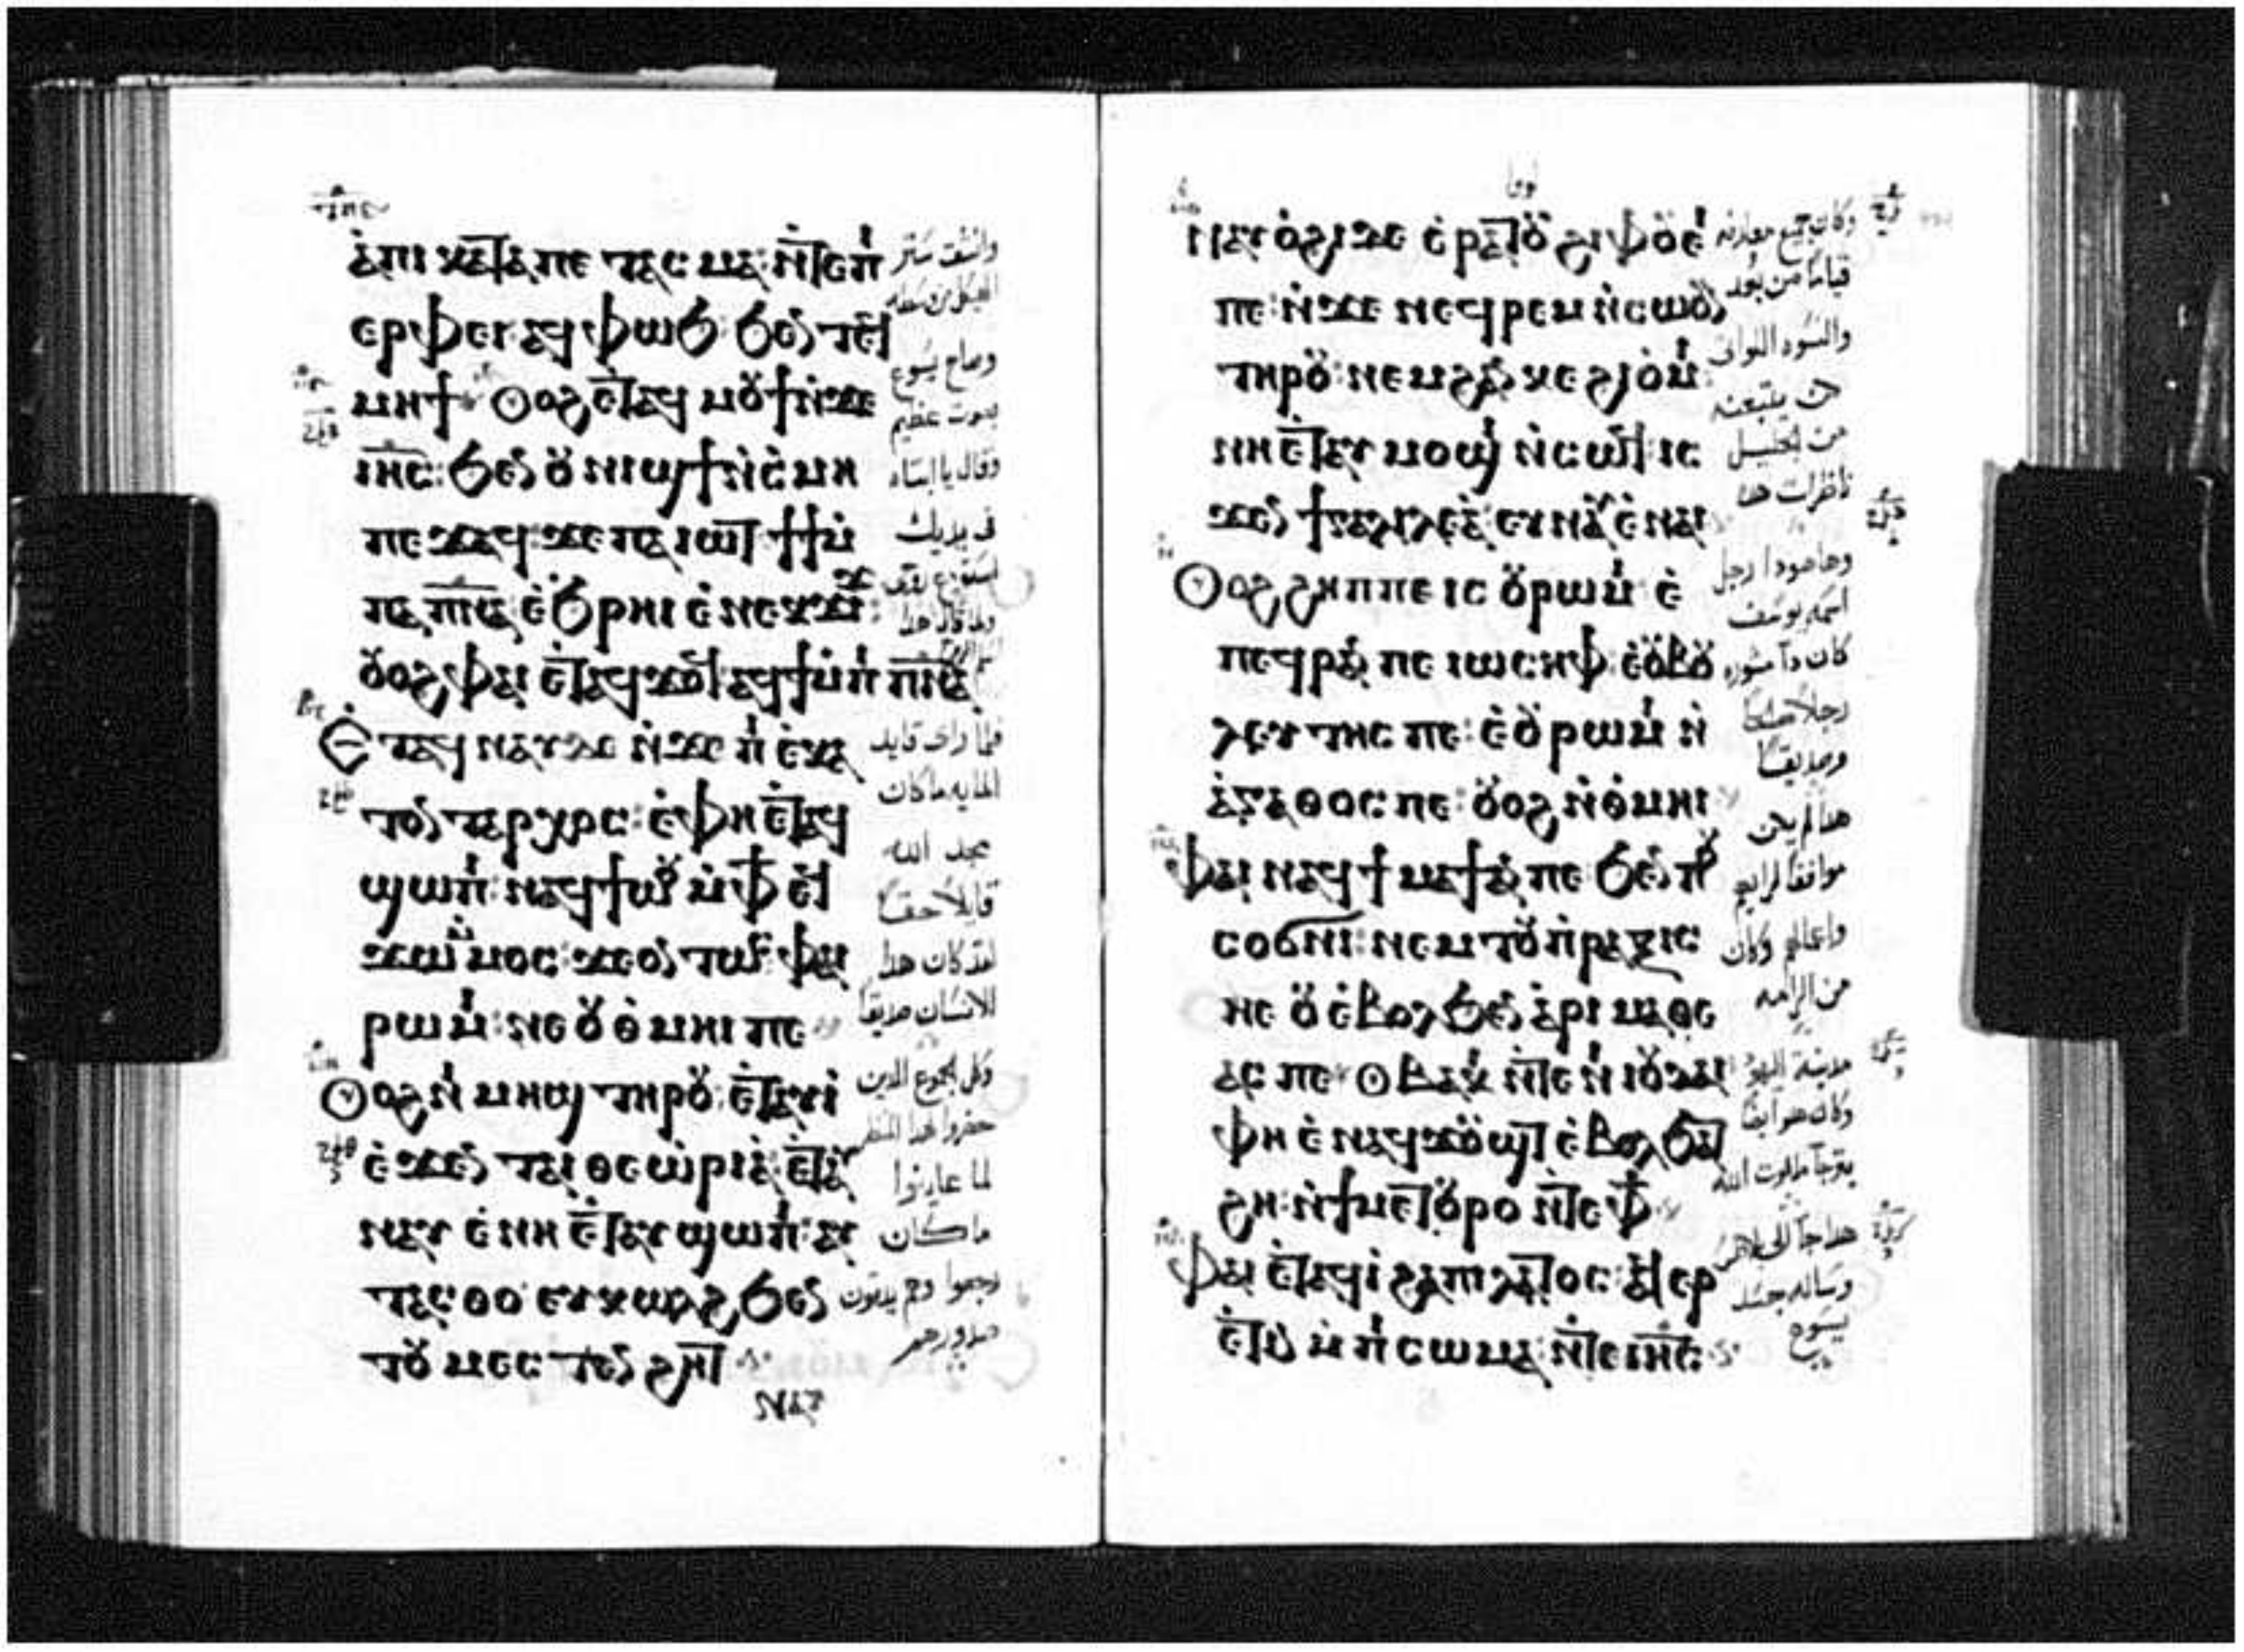 ⲁ̀ⲡⲓ ⲕⲁⲧⲁⲡⲉ ⲧⲁⲥ ⲙⲁ: ⲛ̀ⲧⲉⲡ̇
ⲉⲣⲫⲉⲓ ⲁϥ ⲫⲱϧ: ϧⲉⲛ ⲧⲉϥ
ⲙⲏϯ Ⲟⲩⲟϩ ⲉ̀ⲧⲁϥ ⲙⲟⲩϯ ⲛ̀ϫⲉ
ⲓⲏ̅ⲥ̅: ϧⲉⲛ ⲟⲩ ⲛⲓϣϯ ⲛ̀ⲥ̀ⲙⲏ
ⲡⲉϫⲁϥ: ϫⲉ ⲡⲁ ⲓⲱⲧ ϯϯⲙ̇
ⲡⲁ ⲡ̅ⲛ̅ⲁ̅ ⲉ̀ϧⲣⲏⲓ ⲉ̀ⲛⲉⲕϫⲓϫ:
ⲟⲩⲟϩ ⲫⲁⲓ ⲉ̀ⲧⲁϥϫⲟϥ ⲁϥϯⲙ̇ⲡ̇ ⲡ̅ⲛ̅ⲁ̅
Ⲉⲧⲁϥ ⲛⲁⲩ ⲇⲉ ⲛ̀ϫⲉ ⲡ̇ ⲉ̀ⲕⲁ
ⲧⲟⲛⲧⲁⲣⲭⲟⲥ: ⲉ̀ⲫⲏ ⲉ̀ⲧⲁϥ
ϣⲱⲡ̇: ⲛⲁϥϯⲱⲟⲩ ⲙ̀ⲫϯ ⲉϥ
ϫⲱ ⲙ̇ⲙⲟⲥ: ϫⲉ ⲟⲛⲧⲱⲥ ⲫⲁⲓ
ⲣⲱⲙ̇: ⲛⲉ ⲟⲩ ⲑ̀ⲙⲏⲓ ⲡⲉ
Ⲟⲩⲟϩ ⲛ̇ ⲙⲏϣ ⲧⲏⲣⲟⲩ: ⲉ̀ⲧⲁⲩⲓ̀
ⲉ̀ϫⲉⲛ ⲧⲁⲓ ⲑⲉⲱ̀ⲣⲓⲁ̀: ⲉ̀ⲧⲁⲩ
ⲛⲁⲩ ⲉ̀ⲛⲏ ⲉ̀ⲧⲁⲩ ϣⲱⲡ̇: ⲁⲩ
ⲧⲁⲥⲑⲟ ⲉⲩⲕⲱⲗϩ ϧⲉⲛ
ⲧⲟⲩ ⲙⲉⲥ ⲧⲉⲛϩⲏⲧ
ⲛⲁⲩ
وانشق ستر
وصاح يسوع
بصوت عظيم
وقال يا ابتاه
في يديك
فلما راى قايد
المايه ماكان
مجد الله
قايلاً حقاً
لقد كان هدا
الانسان صديقاً
وكل الجموع الدين
لما عاينوا
ماكان
رجعوا وهم يدقون
صدورهم
لوقا
ⲛⲁⲩ ⲟ̀ϩⲓ ϫⲉ ⲉ̀ⲣⲁⲧⲟⲩ ϩⲓⲫⲟⲩⲉ̇
ⲡⲉ: ⲛ̀ϫⲉ ⲛⲉϥⲣⲉⲙ ⲛ̀ⲥⲱⲟⲩⲛ
ⲧⲏⲣⲟⲩ: ⲛⲉⲙ ϩⲁⲛ ⲕⲉ ϩⲓⲟ̀ⲙ̇:
ⲛⲏ ⲉ̀ⲧⲁⲩ ⲙⲟϣⲓ ⲛ̀ⲥⲱϥ: ⲓⲥ
ϫⲉⲛ ϯⲅⲁⲗⲗⲉⲁ̀: ⲉⲩⲛⲁⲩ ⲉ̀ⲛⲁⲓ
Ⲟⲩⲟϩ ϩⲏⲡⲡⲉ ⲓⲥ ⲟⲩⲣⲱⲙ̇: ⲉ̀
ⲡⲉϥⲣⲁⲛ ⲡⲉ ⲓⲱⲥⲏⲫ: ⲉ̀ⲟⲩⲃⲟⲩ
ⲗⲉⲩⲧⲏⲥ ⲡⲉ: ⲉ̀ⲟⲩⲣⲱⲙ̇ ⲛ̀
ⲁ̀ⲅⲁⲑⲟⲥ ⲡⲉ: ⲟⲩⲟϩ ⲛ̀ⲑ̀ⲙⲏⲓ
Ⲫⲁⲓ ⲛⲁϥϯ ⲙⲁϯ ⲁⲛ ⲡⲉ: ϧⲉⲛ ⲡⲟⲩ
ⲥⲟϭⲛⲓ: ⲛⲉⲙ ⲧⲟⲩ ⲡ̀ⲣⲁⲝⲓⲥ
ⲛⲉ ⲟⲩ ⲉ̀ⲃⲟⲗ ϧⲉⲛ ⲁ̀ⲣⲓ ⲙⲁⲑⲉ
ⲁⲥ ⲡⲉ: ⲑⲃⲁⲕ̇ ⲛ̀ⲧⲉ ⲛ̇ ⲓⲟⲩⲇⲁⲓ
ⲫⲏ ⲉ̀ⲛⲁϥϫⲟⲩϣⲧ ⲉ̀ⲃⲟⲗ ϧⲁϫ
ϩⲏ: ⲛ̀ϯⲙⲉⲧⲟⲩⲣⲟ ⲛ̀ⲧⲉ ⲫϯ
Ⲫⲁⲓ ⲉ̀ⲧⲁϥⲓ̀ ϩⲁ ⲡⲓⲗⲁⲧⲟⲥ: ⲁϥⲉⲣ
ⲉ̀ⲧⲓⲛ ⲙ̀ⲡ̇ ⲥⲱⲙⲁ: ⲛ̀ⲧⲉ ⲓⲏ̅ⲥ̅
وكان جميع معارفه
قياماً من بعد
والنسوه اللواتى
من الجليل
ناظرات هدا
وهاهودا رجل
اسمه يوسف
رجلاً صالحاً
وصديقاً
هدا لم يكن
موافقاً لرايهم
واعمالهم وكان
من الرامه
مدينة اليهود
وكان هو ايضاً
وساله جسد
يسوع